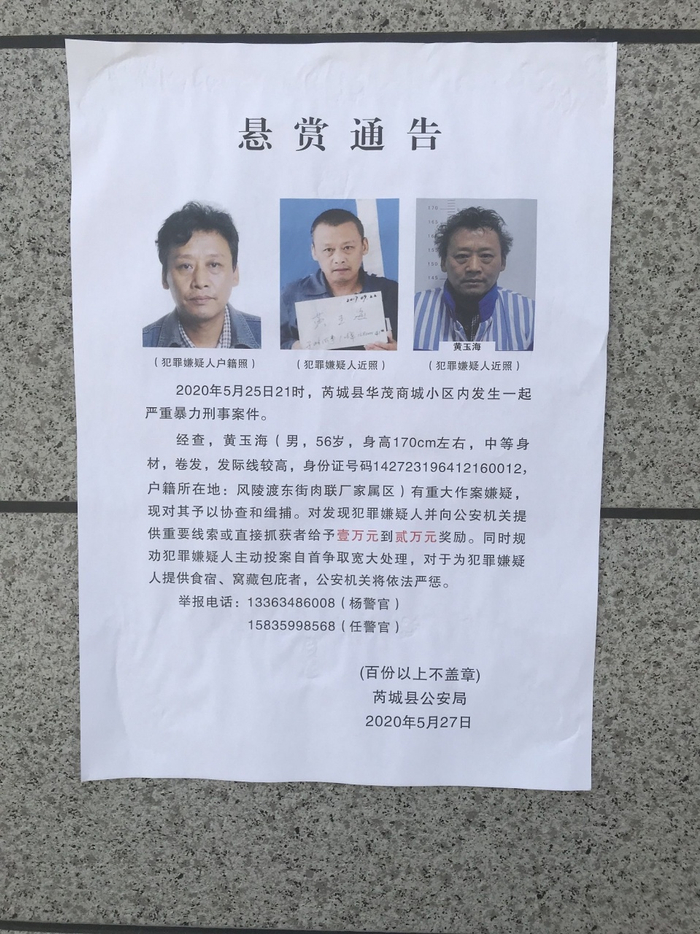 悬赏通告
黄玉海
（犯罪嫌疑人户籍照）
（犯罪嫌疑人近照）
（犯罪嫌疑人近照）
2020年5月25日21时，芮城县华茂商城小区内发生一起
严重暴力刑事案件。
经查，黄玉海（男，56岁，身高170cm左右，中等身
材，卷发，发际线较高，身份证号码142723196412160012，
户籍所在地：风陵渡东街肉联厂家属区）有重大作案嫌疑，
现对其予以协查和缉捕。对发现犯罪嫌疑人并向公安机关提
供重要线索或直接抓获者给予壹万元到贰万元奖励。同时规
劝犯罪嫌疑人主动投案自首争取宽大处理，对于为犯罪嫌疑
人提供食宿、窝藏包庇者，公安机关将依法严惩。
举报电话：13363486008（杨警官）
15835998568（任警官）
(百份以上不盖章)
芮城县公安局
2020年5月27日